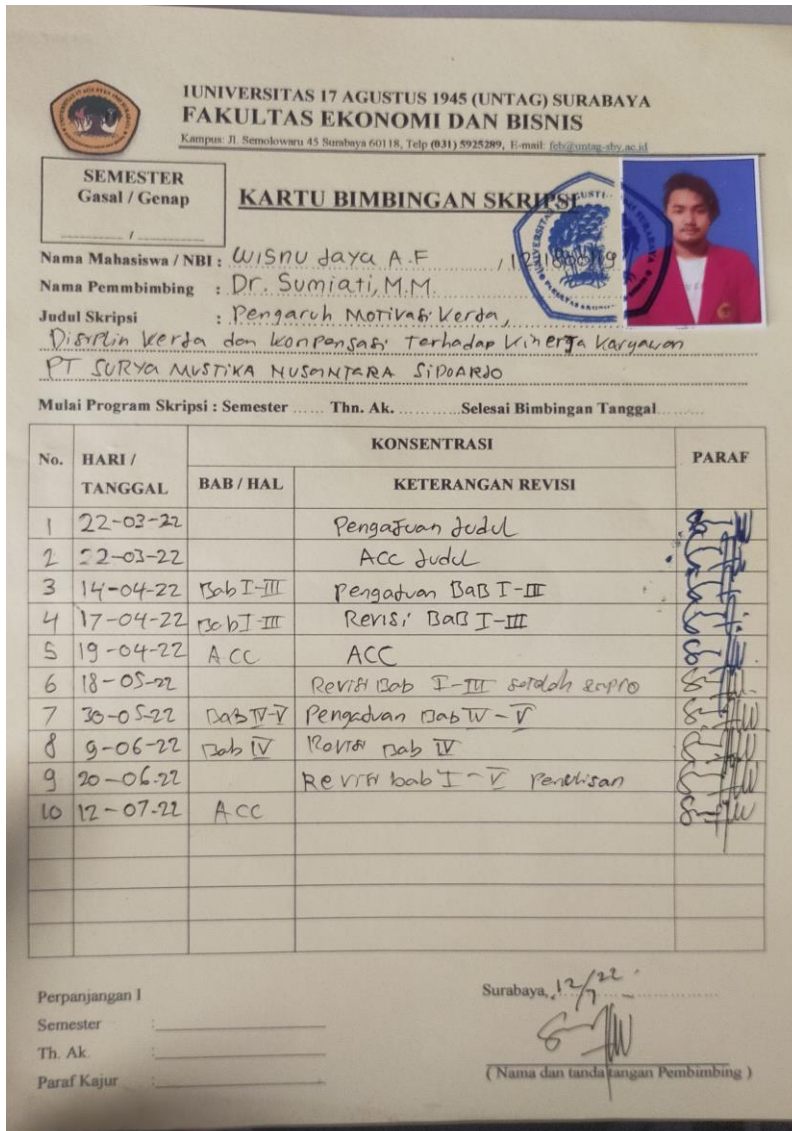 1UNIVERSITAS 17 AGUSTUS 1945 (UNTAG) SURABAYA
FAKULTAS EKONOMI DAN BISNIS
Kampus: Jl. Semolowaru 45 Surabaya 60118, Telp (031) 5925289, E-mail: feb@untag-sby.ac.id
SEMESTER
Gasal / Genap
/
KARTU BIMBINGAN SKRIPSI
Nama Mahasiswa / NBI : Wisnu Jaya A.F /
Nama Pemmbimbing : Dr. Sumiati, M.M.
Judul Skripsi : Pengaruh Motivasi Kerja,
Disiplin Kerja dan Konpensasi Terhadap Kinerja Karyawan
PT SURYA MUSTIKA NUSANTARA SIDOARJO
Mulai Program Skripsi : Semester ...... Thn. Ak. ............Selesai Bimbingan Tanggal..........
No. HARI / TANGGAL KONSENTRASI PARAF
BAB / HAL KETERANGAN REVISI
1 22-03-22 Pengajuan Judul
2 22-03-22 ACC Judul
3 14-04-22 Bab I-III Pengajuan BaB I-III
4 17-04-22 Bab I-III Revisi BaB I-III
5 19-04-22 ACC ACC
6 18-05-22 Revisi Bab I-III setelah sempro
7 30-05-22 BaB IV-V Pengajuan Bab IV-V
8 9-06-22 Bab IV Revisi Bab IV
9 20-06-22 Revisi bab I-V Penulisan
10 12-07-22 ACC
Perpanjangan I
Semester :
Th. Ak. :
Paraf Kajur :
Surabaya, 12/7 22
( Nama dan tanda tangan Pembimbing )